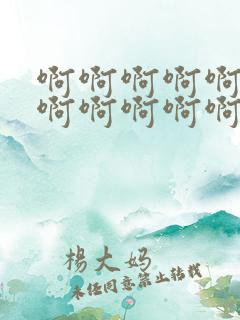 啊啊啊啊啊
啊啊啊啊啊
楊大妈
未经同意禁止转载